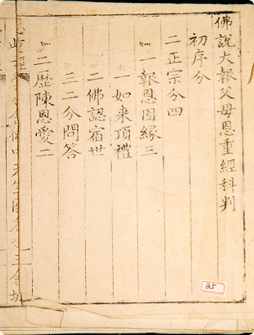 佛說大報父母恩重經科判
初序分
二正宗分四
一報恩因緣三
一如来頂禮
二佛認宿世
三二分問答
二歷陳恩愛二
35